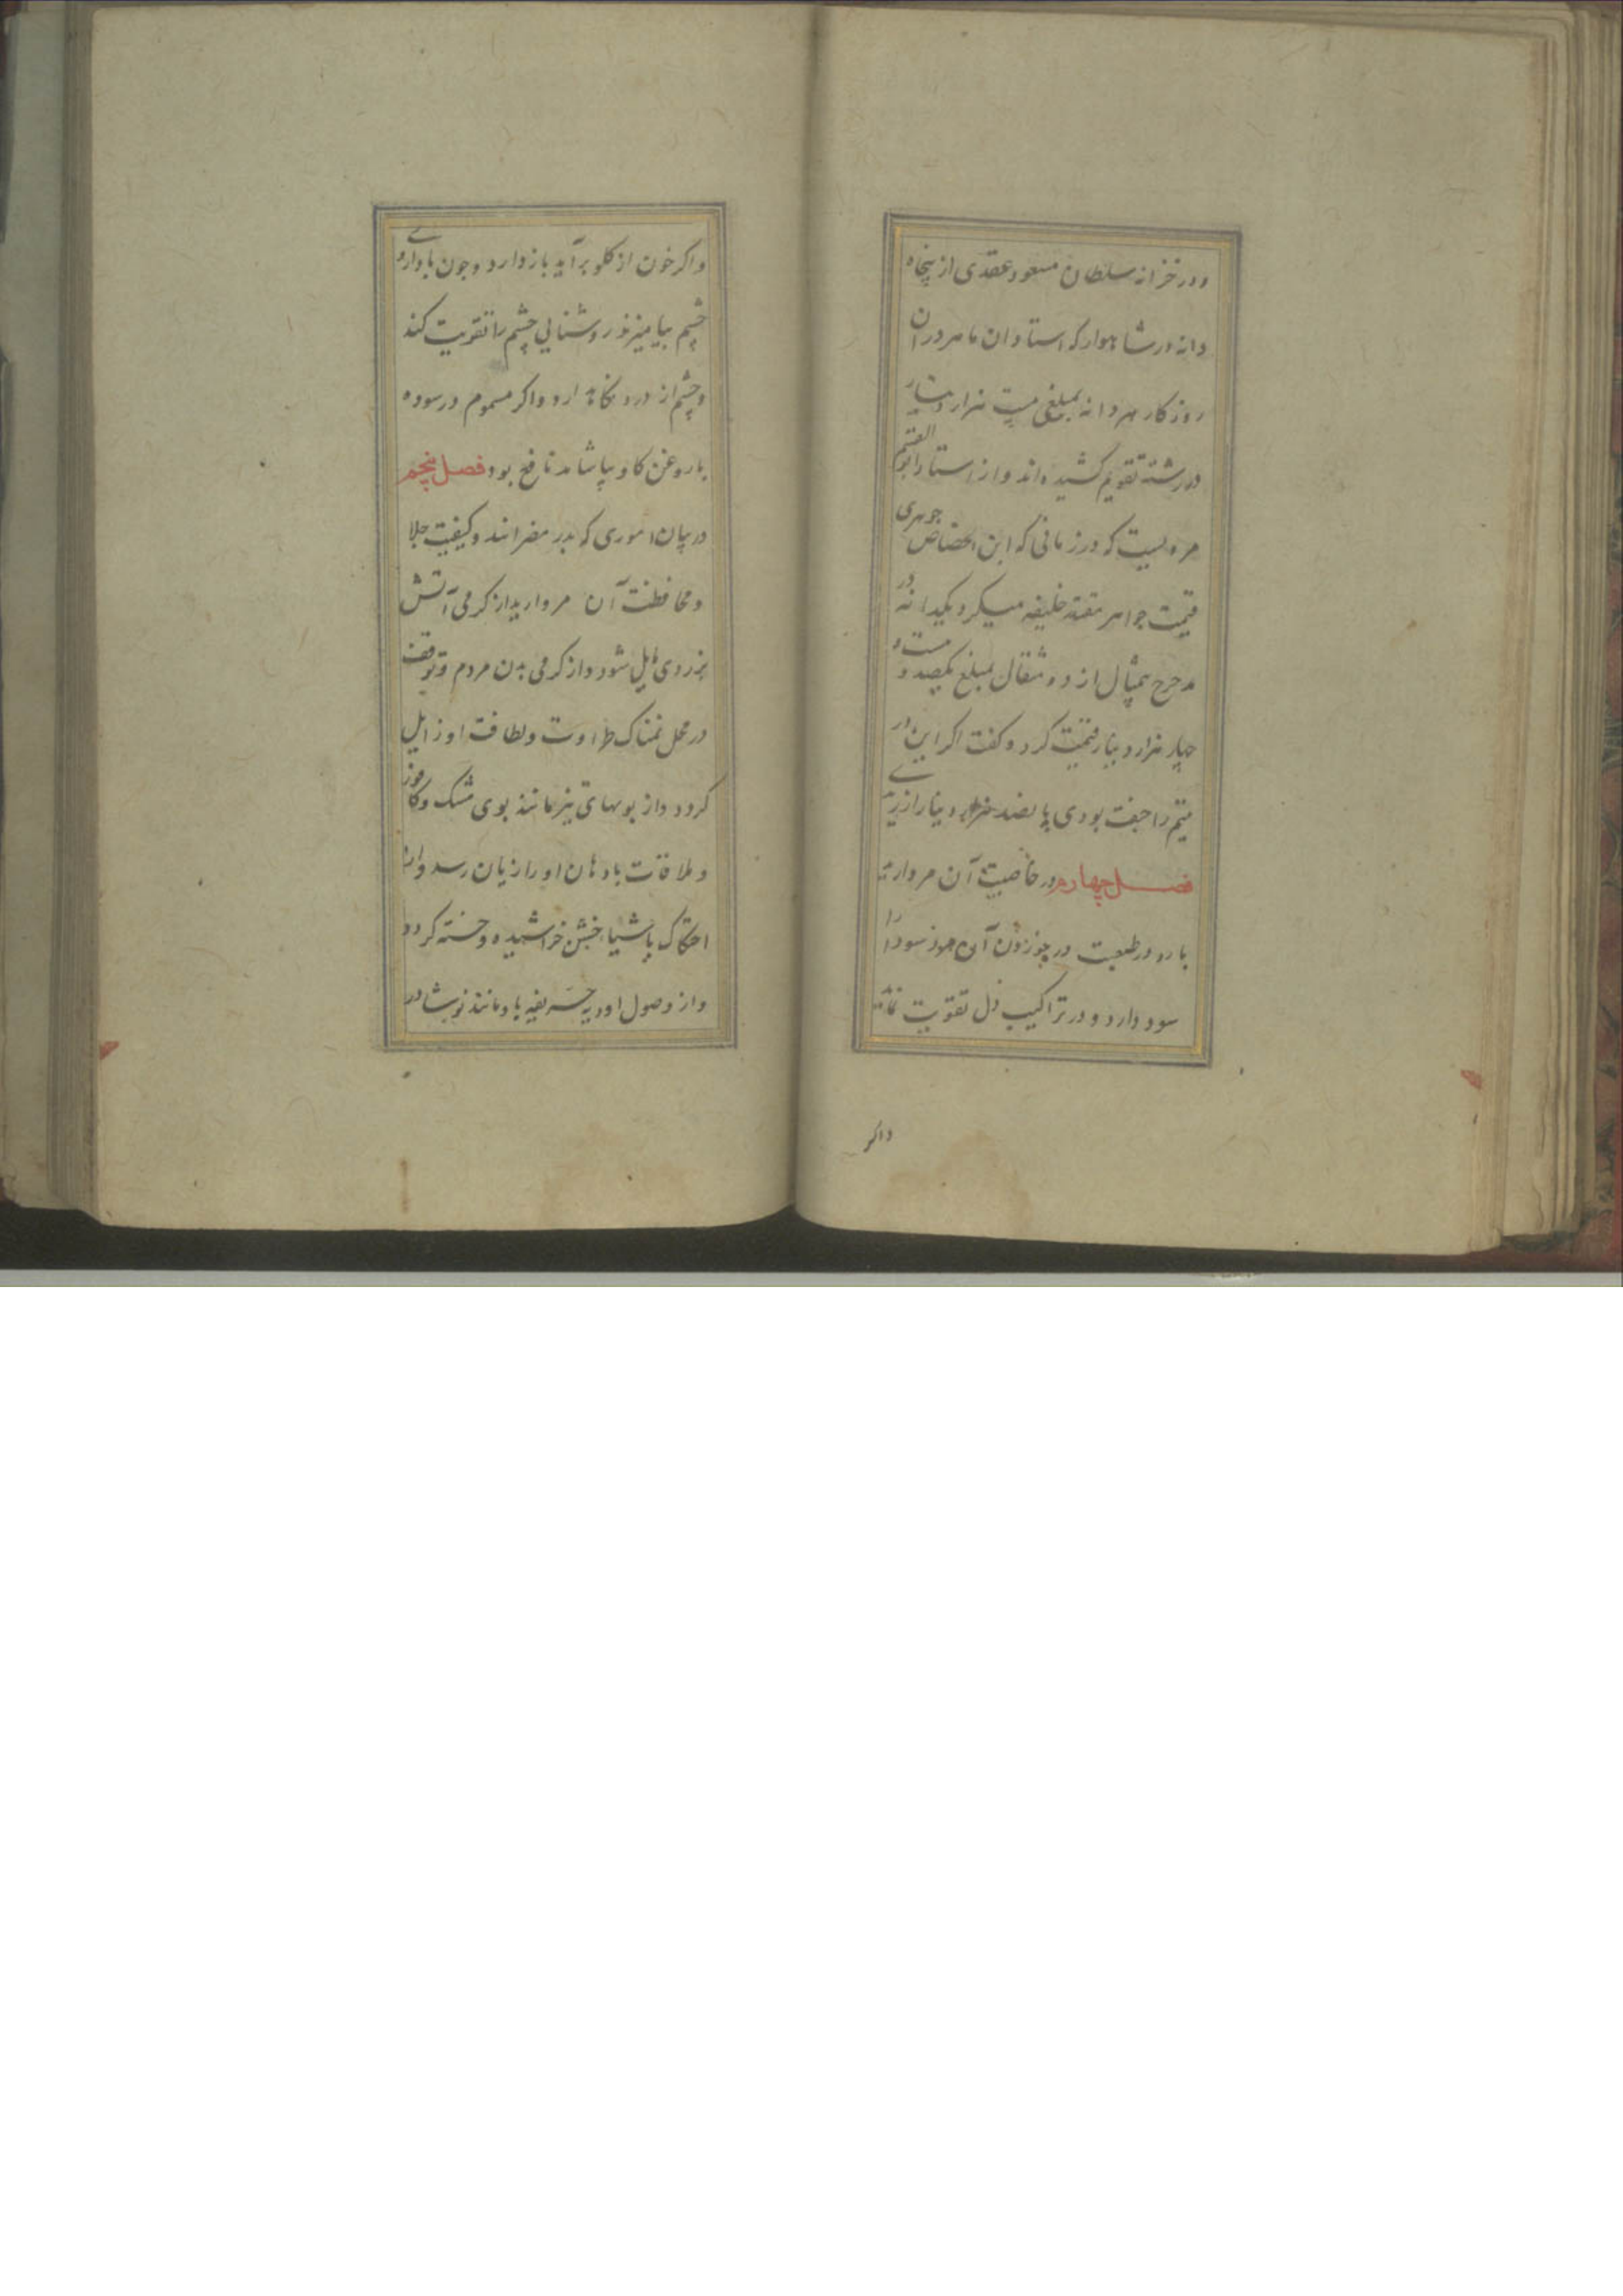 و در خزانه سلطان مسعود عقدی از پنجاه
دانه در شاهوار که استادان ماهر در ان
روزکار هر دانه بمبلغی بیست هزار دینار
در رشته تقویم کشیده اند و از استاد ابو القسم
مرویست که در زمانی که ابن الخصاص جوهری
قیمت جواهر مقتدر خلیفه میکرد یکدانه در
مدحرج بمثال از دو مثقال بمبلغ یکصد و بیست و
چهار هزار دینار قیمت کرد و کفت اکر این در
یتیم را جفت بودی پانصد هزار دینار ارزیدی
فصل چهارم در خاصیت آن مروارید
بارد در طبیعت در چون آن سودا را
سود دارد و در تراکیب دل تقویت نماید
واکر
و اکر خون از کلو برآید باز دارد و چون با داروی
چشم بیامیزند روشنایی چشم را تقویت کند
و چشم از درد نکاه دارد و اکر مسموم در سوده
با روغن کاو بیاشامد نافع بود فصل پنجم
در بیان اموری که بدر مضراند و کیفیت جلا
و محافظت آن مروارید از کرمی آتش
بزردی مایل شود و از کرمی بدن مردم و توقف
در محل نمناک طراوت و لطافت او زایل
کردد و از بوهای تیز مانند بوی مشک و کافور
و ملاقات با دهان او را زیان رسد و از
احتکاک باشیا خشن خراشیده و خسته کردد
و از وصول ادویه حریفه با و مانند نوشادر